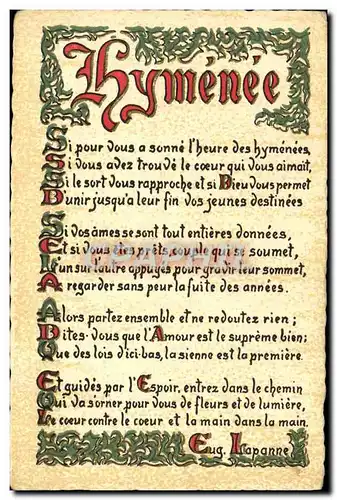 Hyménée
Si pour vous a sonné l'heure des hyménées,
Si vous avez trouvé le cœur qui vous aimait,
Si le sort vous rapproche et si Dieu vous permet
D'unir jusqu'a leur fin vos jeunes destinées
Si vos âmes se sont tout entières données,
Et si vous êtes prêts, couple qui se soumet,
L'un sur l'autre appuyés pour gravir leur sommet,
A regarder sans peur la fuite des années.
Alors partez ensemble et ne redoutez rien ;
Dites-vous que l'Amour est le suprême bien;
Que des lois d'ici-bas, la sienne est la première.
Et guidés par l'Espoir, entrez dans le chemin
Qui va s'orner pour vous de fleurs et de lumière,
Le cœur contre le cœur et la main dans la main.
Eug. Lapanne